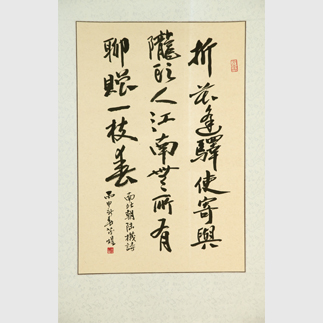 折花逢驛使寄與
隴頭人江南無所有
聊贈一枝春
南北朝陸機詩